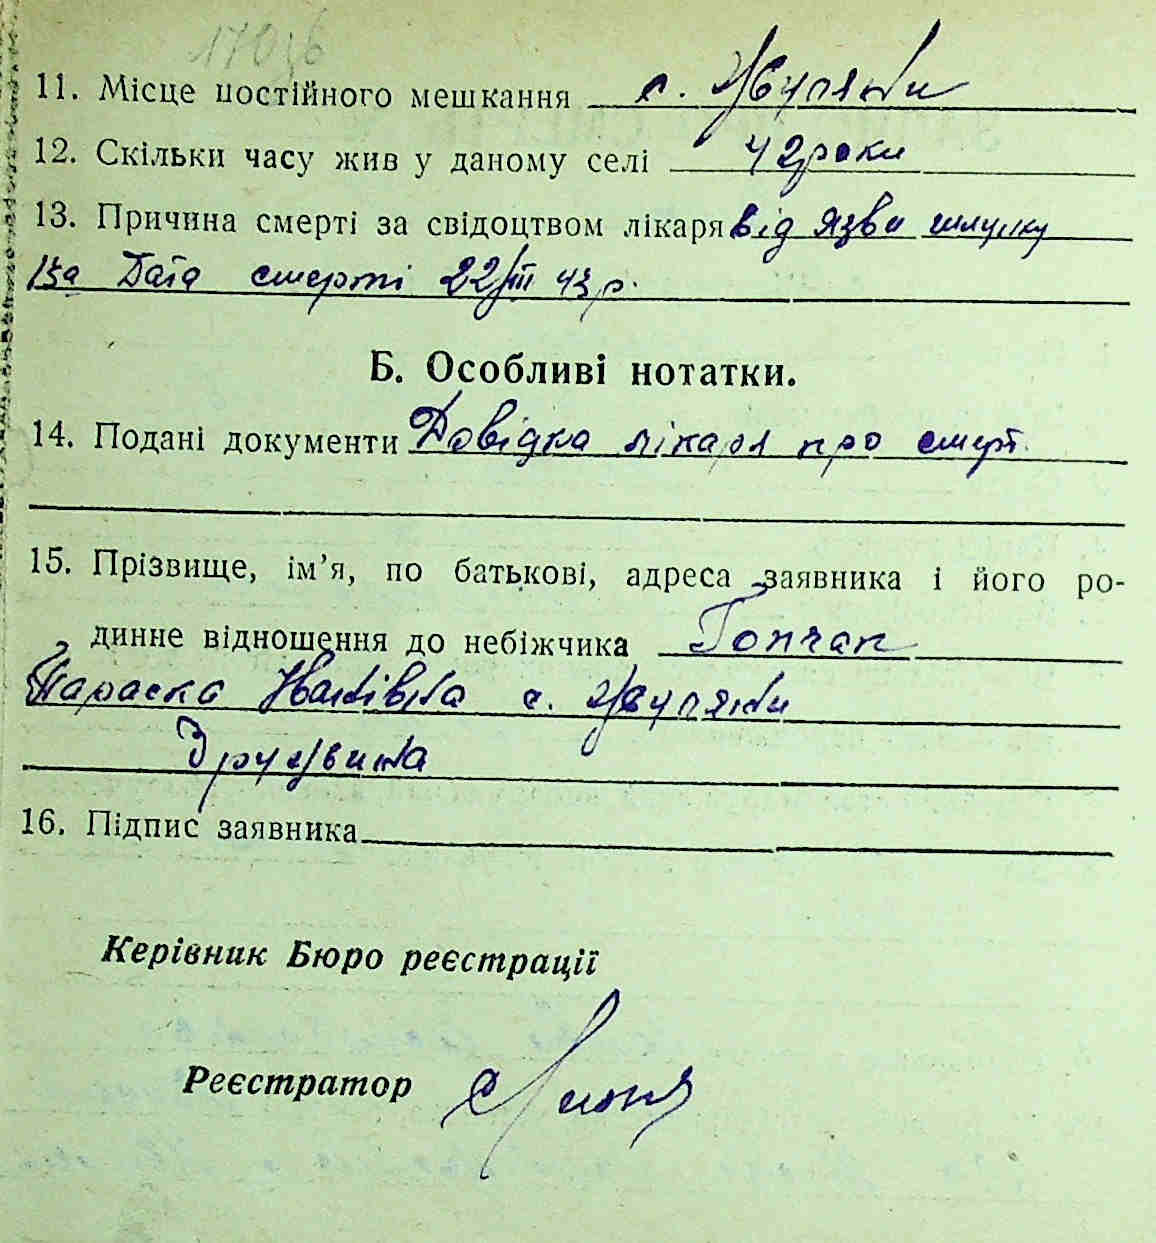 170зб
11. Місце постійного мешкання с. Жуляни
12. Скільки часу жив у даному селі 42 роки
13. Причина смерті за свідоцтвом лікаря від язви шлунку
13а Дата смерті 22/III 43 р.
Б. Особливі нотатки.
14. Подані документи Довідка лікаря про смерт.
15. Прізвище, ім’я, по батькові, адреса заявника і його ро-
динне відношення до небіжчика
Параска Іванівна с. Жуляни
Дружина
16. Підпис заявника
Керівник Бюро реєстрації
Реєстратор